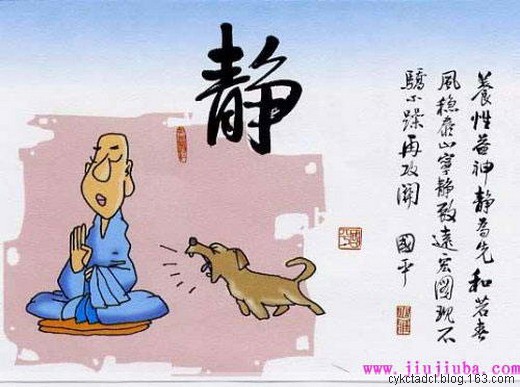 静
養性益神静为先 和若春
風稳泰山寧静致遠宏图現不
驕不躁再攻関 國平
www.jiujiuba.com
cykctadcl.blog.163.com